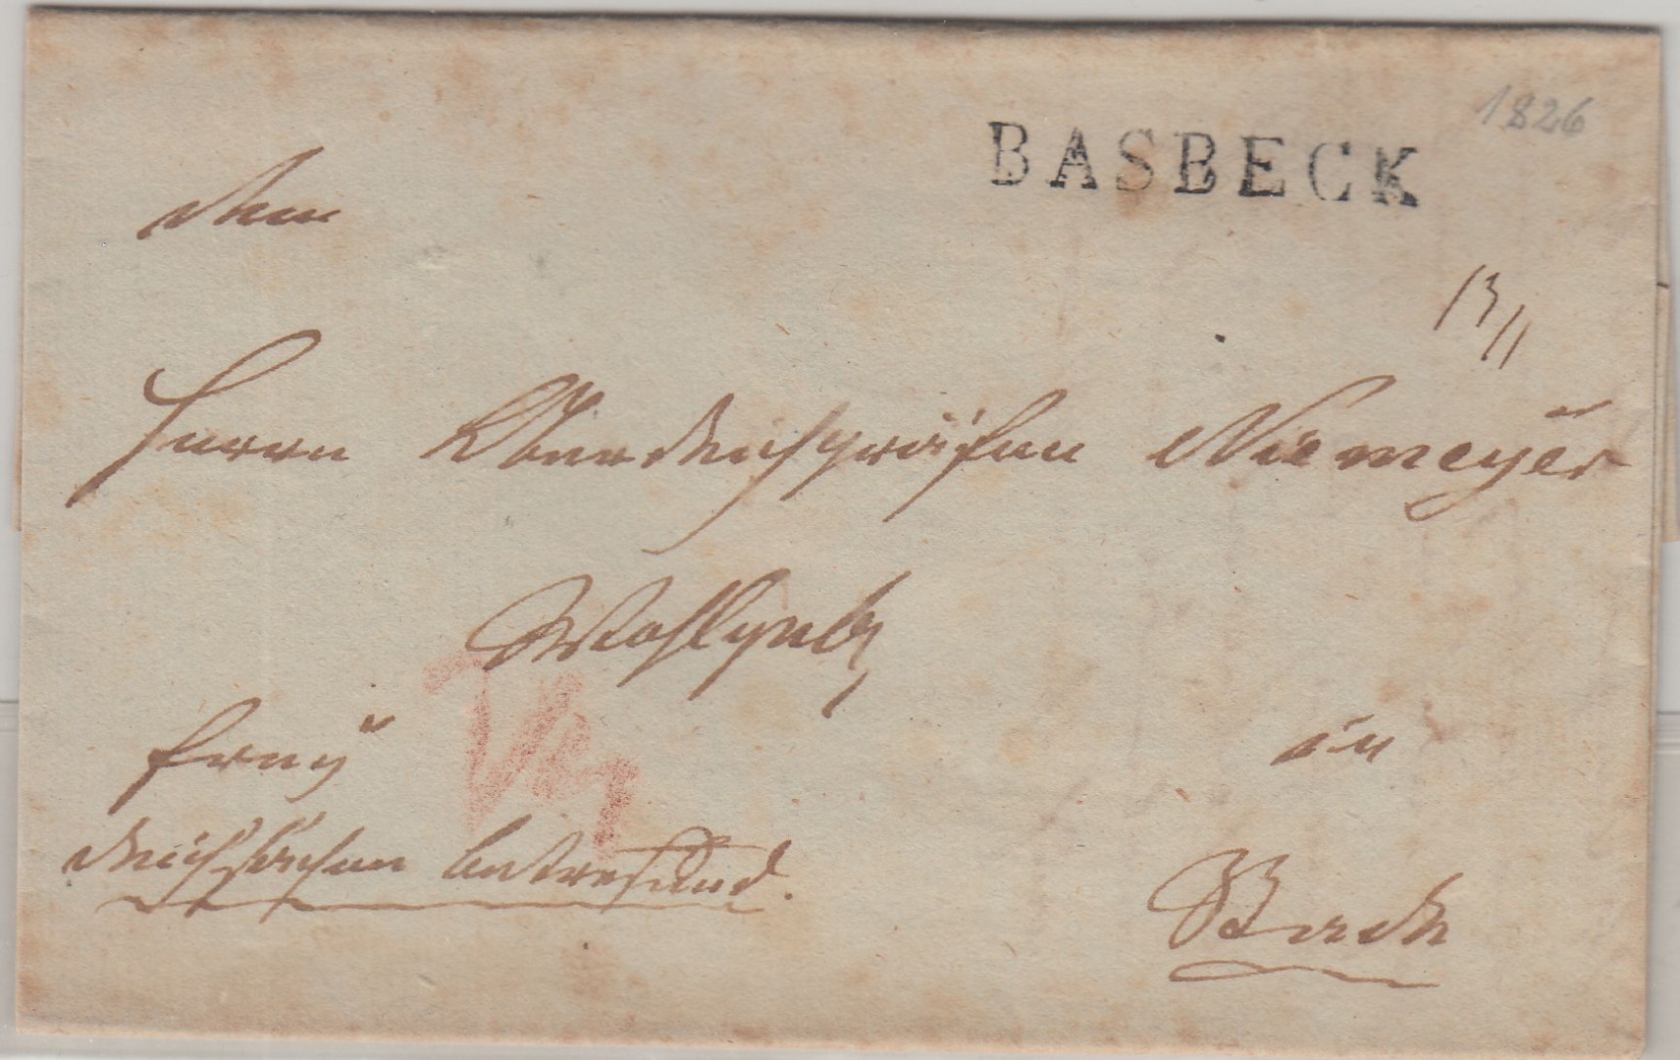 1826
BASBECK
dem
13/11
Herrn Oberdeichgräfen Niemeyer
Wohlgeb
frey
in
Deichsachen betrefend.
Stade